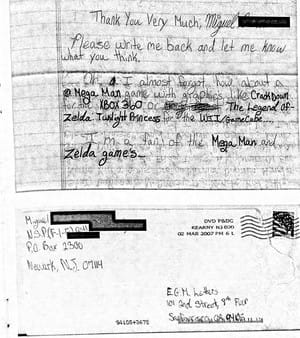 Thank You Very Much, Miguel
Please write me back and let me know
what you think.
Oh, I almost forgot, how about a
Mega Man game with graphics like Crackdown
for the XBOX 360 or The Legend Of
Zelda Twilight Princess for the WII/GameCube
I'm a fan of the Mega Man and
Zelda games
Miguel
P.O. Box 2300
Newark, NJ 07114
DVD P&DC
KEARNY NJ 070
02 MAR 2007 PM 6 L
E.G.M. Letters
101 2nd Street, 8th
94105+3672